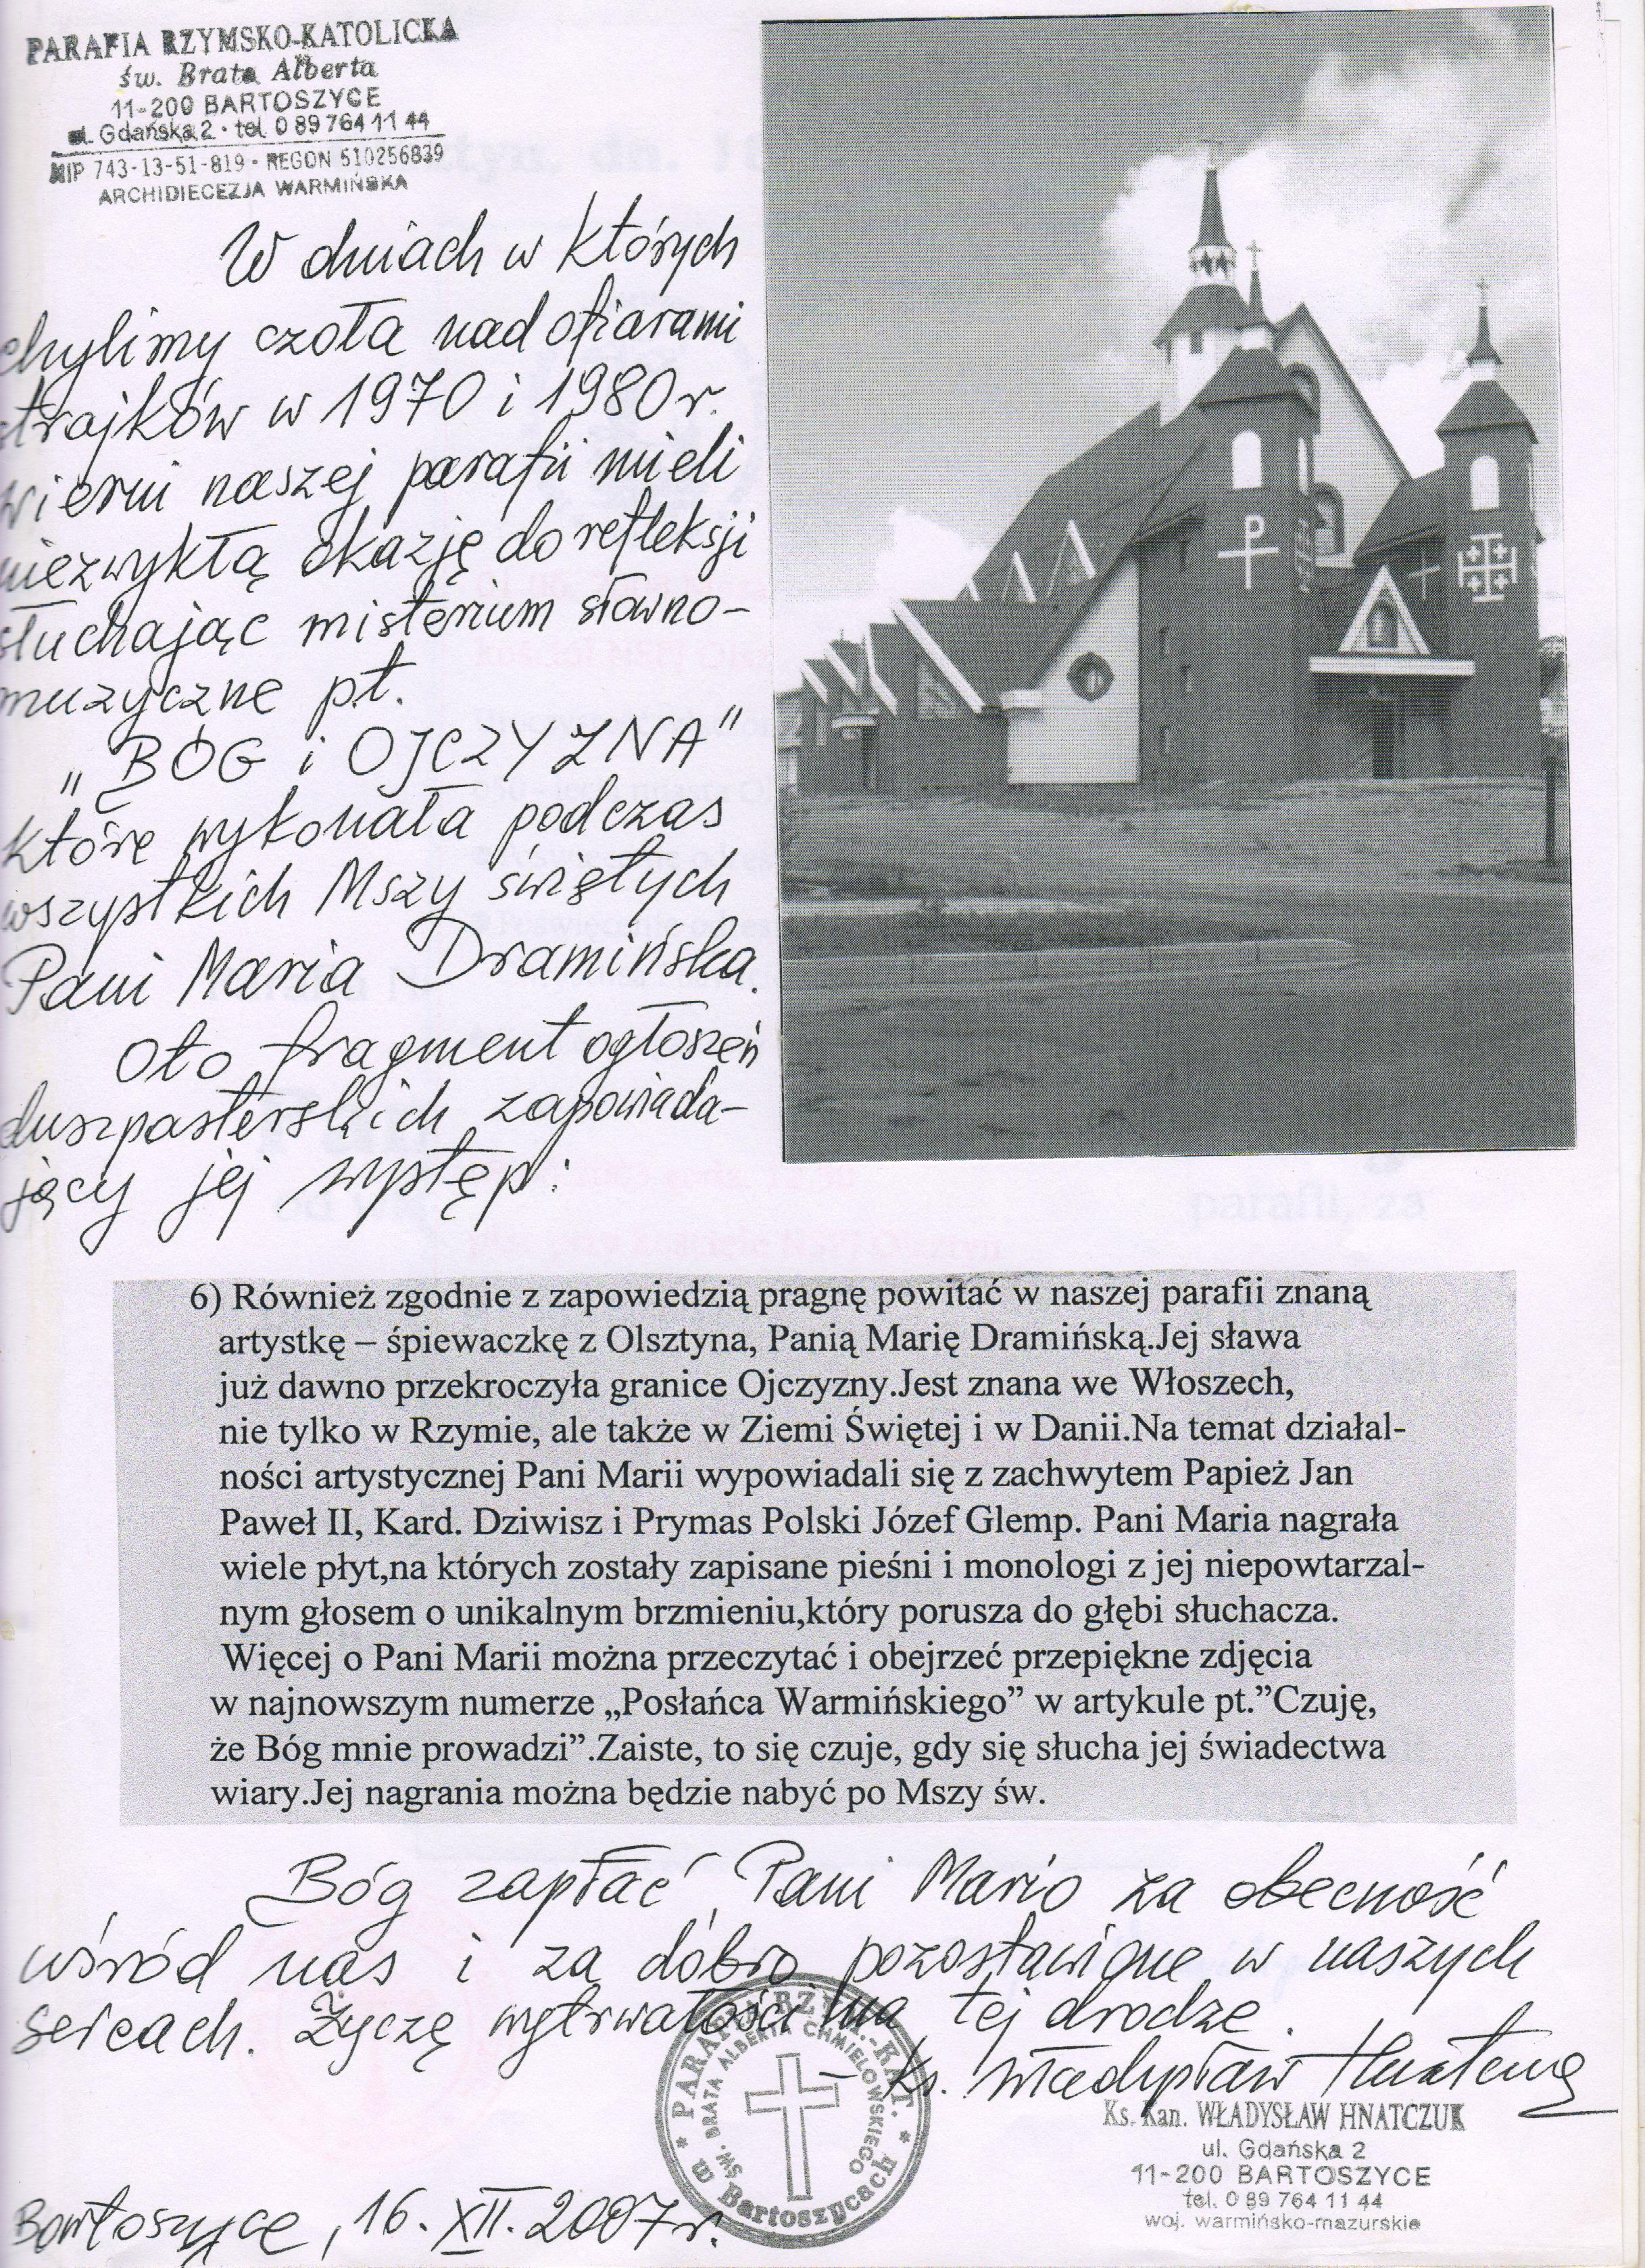 PARAFIA RZYMSKO-KATOLICKA
św. Brata Alberta
11-200 BARTOSZYCE
ul. Gdańska 2 · tel. 0 89 764 11 44
NIP 743-13-51-819 · REGON 510256839
ARCHIDIECEZJA WARMIŃSKA
W dniach w których
chylimy czoła nad ofiarami
strajków w 1970 i 1980 r.
wierni naszej parafii mieli
niezwykłą okazję do refleksji
słuchając misterium słowno-
muzyczne pt.
„BÓG i OJCZYZNA"
które wykonała podczas
wszystkich Mszy świętych
Pani Maria Dramińska.
Oto fragment ogłoszeń
duszpasterskich zapowiada-
jący jej występ:
6) Również zgodnie z zapowiedzią pragnę powitać w naszej parafii znaną
artystkę – śpiewaczkę z Olsztyna, Panią Marię Dramińską.Jej sława
już dawno przekroczyła granice Ojczyzny.Jest znana we Włoszech,
nie tylko w Rzymie, ale także w Ziemi Świętej i w Danii.Na temat działal-
ności artystycznej Pani Marii wypowiadali się z zachwytem Papież Jan
Paweł II, Kard. Dziwisz i Prymas Polski Józef Glemp. Pani Maria nagrała
wiele płyt,na których zostały zapisane pieśni i monologi z jej niepowtarzal-
nym głosem o unikalnym brzmieniu,który porusza do głębi słuchacza.
Więcej o Pani Marii można przeczytać i obejrzeć przepiękne zdjęcia
w najnowszym numerze „Posłańca Warmińskiego” w artykule pt.”Czuję,
że Bóg mnie prowadzi”.Zaiste, to się czuje, gdy się słucha jej świadectwa
wiary.Jej nagrania można będzie nabyć po Mszy św.
Bóg zapłać Pani Mario za obecność
wśród nas i za dobro pozostawione w naszych
sercach. Życzę wytrwałości na tej drodze.
– Ks. Władysław Hnatczuk
Ks. Kan. WŁADYSŁAW HNATCZUK
ul. Gdańska 2
11-200 BARTOSZYCE
tel. 0 89 764 11 44
woj. warmińsko-mazurskie
* PARAFIA RZYM.-KAT. * w Bartoszycach
ŚW. BRATA ALBERTA CHMIELOWSKIEGO
Bartoszyce, 16. XII. 2007 r.